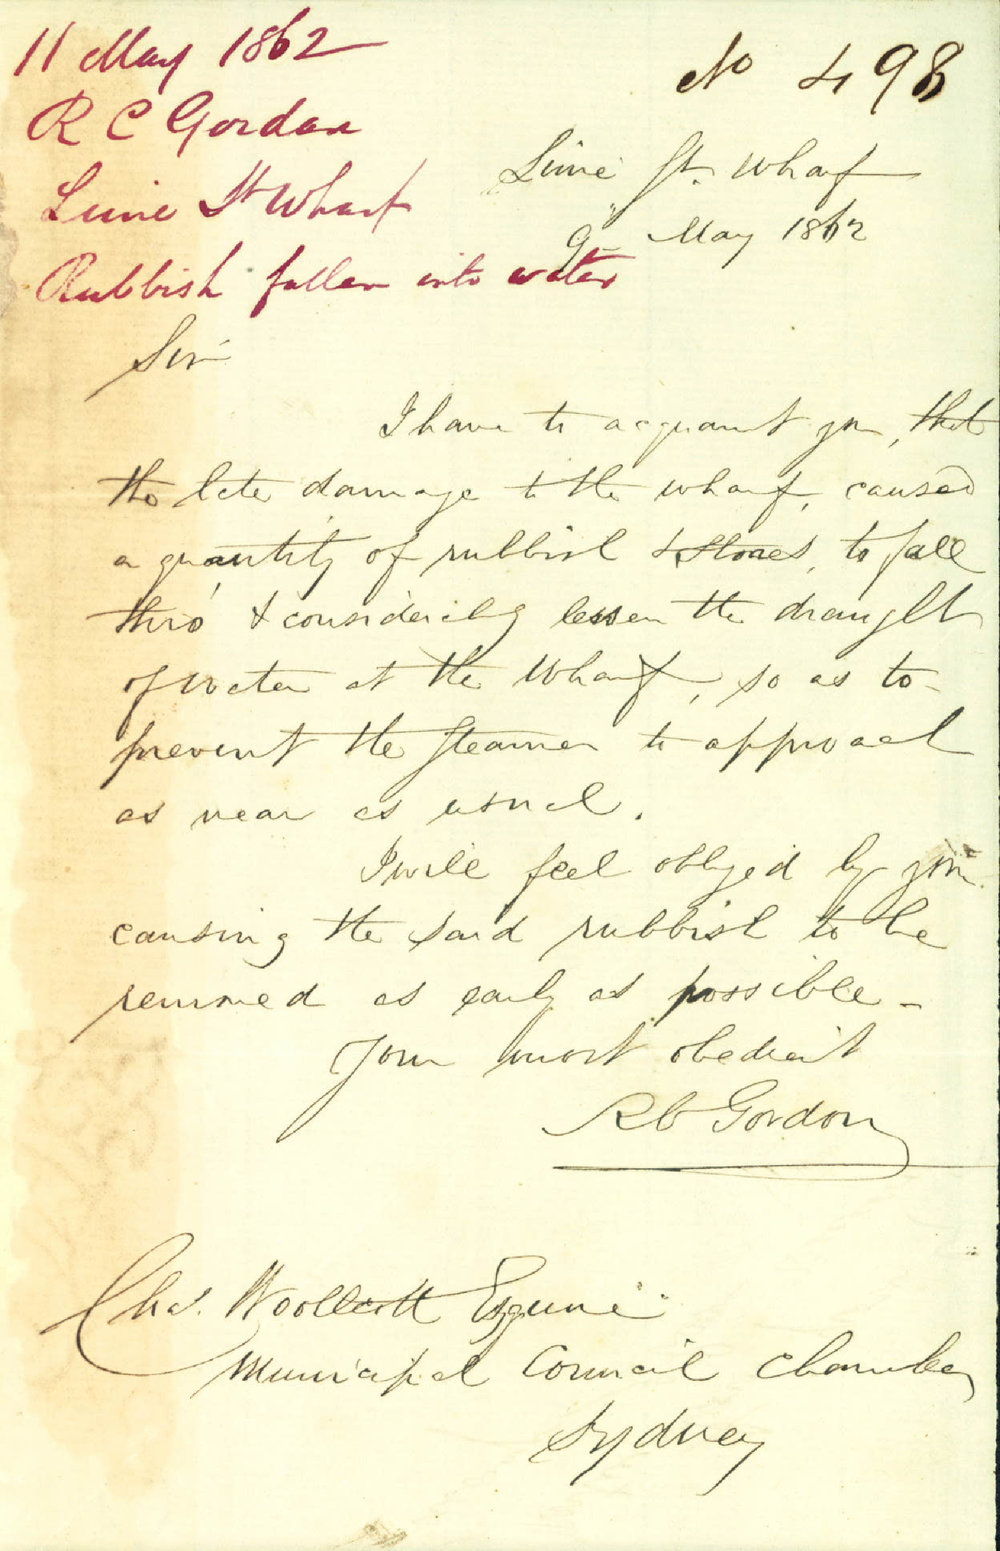 11 May 1862
R C Gordon
Lime St Wharf
Rubbish fallen into water
No 498
Lime St. Wharf
9" May 1862
Sir
I have to acquaint you, that
the late damage to the wharf, caused
a quantity of rubbish & stones, to fall
thro' & considerably lessen the draught
of water at the Wharf, so as to
prevent the steamer to approach
as near as usual.
I will feel obliged by you
causing the said rubbish to be
removed as early as possible -
Your most obedient
R C Gordon
Chas. Woollcott Esquire
Municipal Council Chamber
Sydney